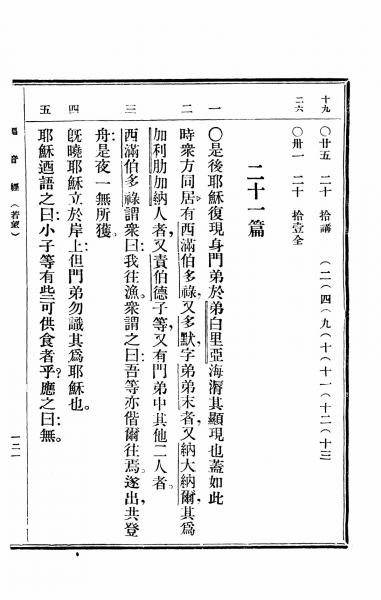 十九 〇廿五 二十 拾講 (二(四(九(十(十一(十二(十三
二六 〇卅一 二十 拾壹全
二十一篇
一 〇是後耶穌復現身門弟於弟白里亞海濱其顯現也蓋如此
二 時衆方同居有西滿伯多祿又多默字弟弟末者又納大納爾其爲
加利肋加納人者又責伯德子等又有門弟中其他二人者
三 西滿伯多祿謂衆曰我往漁衆謂之曰吾等亦偕爾往焉遂出共登
舟是夜一無所獲
四 旣曉耶穌立於岸上但門弟勿識其爲耶穌也
五 耶穌迺語之曰小子等有些可供食者乎?應之曰無
福音經(若望) 一二一